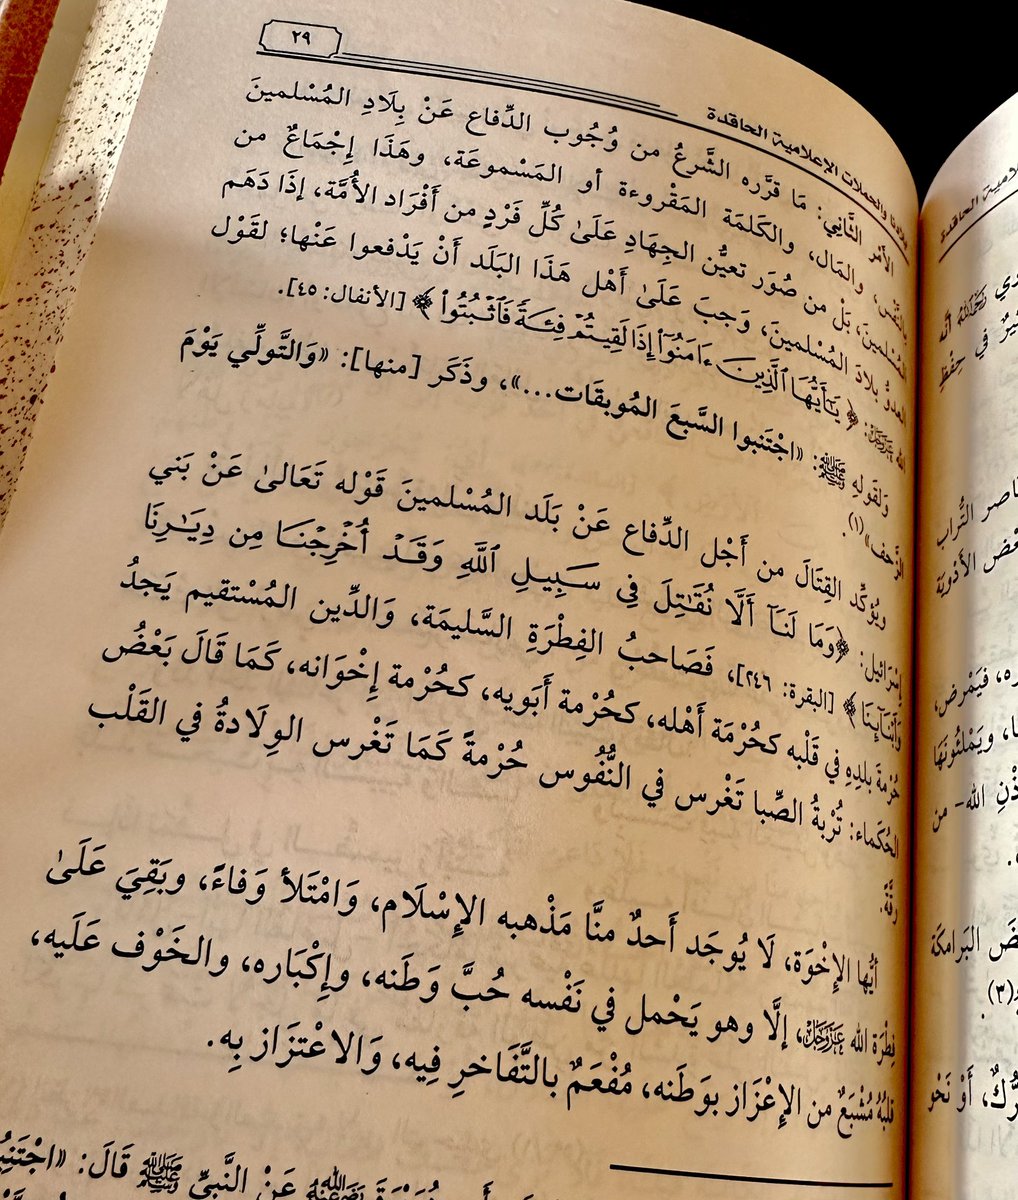 ٢٩
بلادنا والحملات الإعلامية الحاقدة
الأمْر الثَّانِي: مَا قرَّره الشَّرعُ من وُجُوب الدِّفاع عَنْ بِلَادِ المُسْلمينَ
بالنَّفْس، والمَال، والكَلمَة المَقْروءة أو المَسْموعَة، وهَذَا إجْمَاعٌ من
المُسْلمينَ، بَلْ من صُوَر تعيُّن الجِهَادِ عَلَىٰ كُلِّ فَرْدٍ من أَفْرَاد الأُمَّة، إذَا دَهَم
العدوُّ بلادَ المُسْلمينَ، وَجبَ عَلَىٰ أَهْل هَذَا البَلَد أَنْ يَدْفعوا عَنْها؛ لقَوْل
الله ﷿: ﴿يَٰٓأَيُّهَا ٱلَّذِينَ ءَامَنُوٓا۟ إِذَا لَقِيتُمْ فِئَةً فَٱثْبُتُوا۟﴾ [الأنفال: ٤٥].
وَلقَولِهِ ﷺ: «اجْتَنبوا السَّبعَ المُوبقَات...»، وذَكَر [منها]: «وَالتَّولِّي يَوْمَ
الزَّحف»(١).
ويُؤكِّد القِتَالَ من أَجْل الدِّفاع عَنْ بَلَد المُسْلمينَ قَوْله تَعَالىٰ عَنْ بَني
إِسْرَائيل: ﴿وَمَا لَنَآ أَلَّا نُقَٰتِلَ فِى سَبِيلِ ٱللَّهِ وَقَدْ أُخْرِجْنَا مِن دِيَٰرِنَا
وَأَبْنَآئِنَا﴾ [البقرة: ٢٤٦]، فَصَاحبُ الفِطْرَةِ السَّليمَة، وَالدِّين المُسْتقيم يَجدُ
حُرْمةَ بلدِهِ في قَلْبه كحُرْمَة أَهْله، كحُرْمة أَبَويه، كحُرْمة إِخْوَانه، كَمَا قَالَ بَعْضُ
الحُكَماء: تُرْبةُ الصِّبا تَغْرس في النُّفُوس حُرْمةً كَمَا تَغْرس الوِلَادةُ في القَلْب
رقَّةً.
أيُّها الإِخْوَة، لَا يُوجَد أَحدٌ منَّا مَذْهبه الإِسْلَام، وَامْتَلأ وَفاءً، وبَقِيَ عَلَىٰ
فِطْرَة الله ﷿، إلَّا وهو يَحْمل في نَفْسه حُبَّ وَطَنه، وإِكْبَاره، والخَوْف عَلَيه،
قلبُهُ مُشْبَعٌ من الإِعْزَاز بوَطَنه، مُفْعَمٌ بالتَّفَاخرِ فِيه، وَالاعْتزَاز بِه.
عَنْ النَّبيِّ ﷺ قَالَ:
الحاقدة
في حِفْظ
التُّراب
الأَدْوِيَة
فيَمْرض،
ويَمْلئُونَهَا
الله- من
البَرَامكَة
(٣).
أَوْ نَحْو